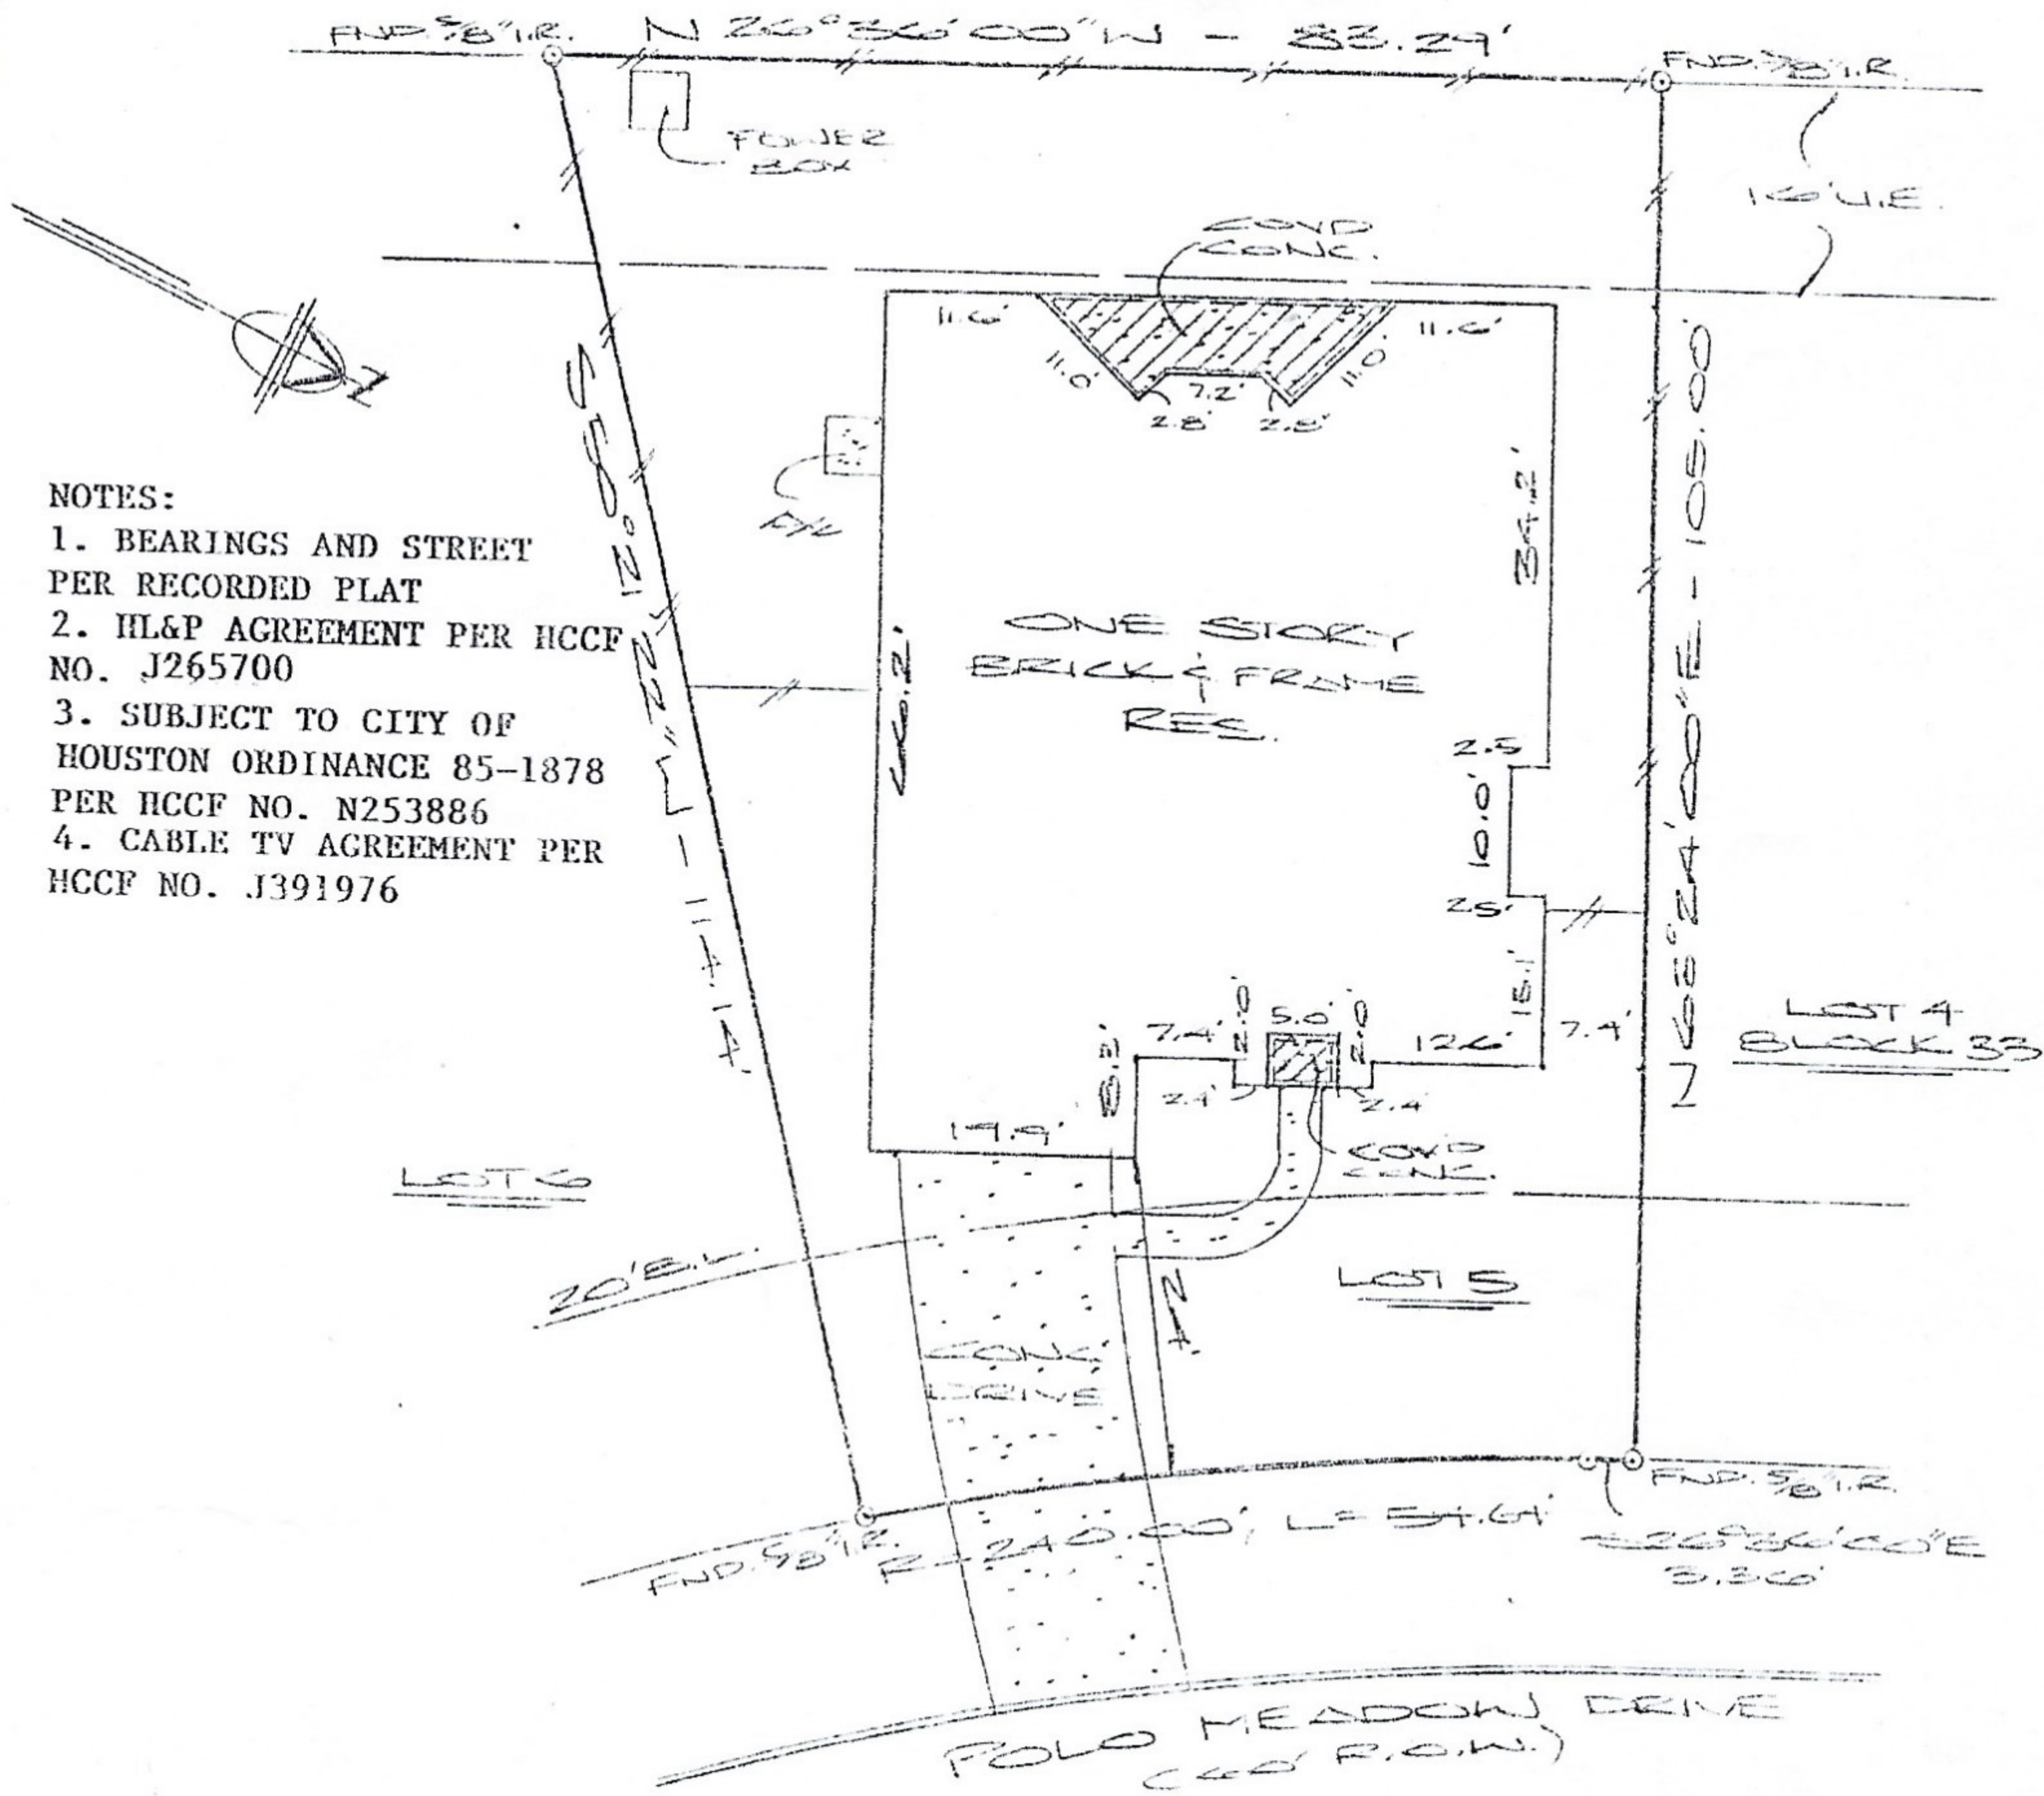 FND. 5/8" I.R.
N 26°36'00"W - 83.29'
FND. 5/8" I.R.
POWER
BOX
16' U.E.
COVD
CONC.
11.6'
11.6'
11.0'
7.2'
11.0'
2.8'
2.8'
A/C
N
34.2'
NOTES:
1. BEARINGS AND STREET
PER RECORDED PLAT
2. HL&P AGREEMENT PER HCCF
NO. J265700
3. SUBJECT TO CITY OF
HOUSTON ORDINANCE 85-1878
PER HCCF NO. N253886
4. CABLE TV AGREEMENT PER
HCCF NO. J391976
ONE STORY
BRICK & FRAME
RES.
66.2'
N 63°24'00"E - 105.00'
2.5
10.0'
2.5'
15.1'
7.4'
2.0'
5.0'
2.0'
12.6'
7.4'
LOT 4
BLOCK 33
2.4'
2.4'
19.9'
COVD
CONC.
LOT 6
20' B.L.
LOT 5
CONC.
DRIVE
FND. 5/8" I.R.
R=240.00', L=54.64'
FND. 5/8" I.R.
S26°36'00"E
3.36'
POLO MEADOW DRIVE
(60' R.O.W.)